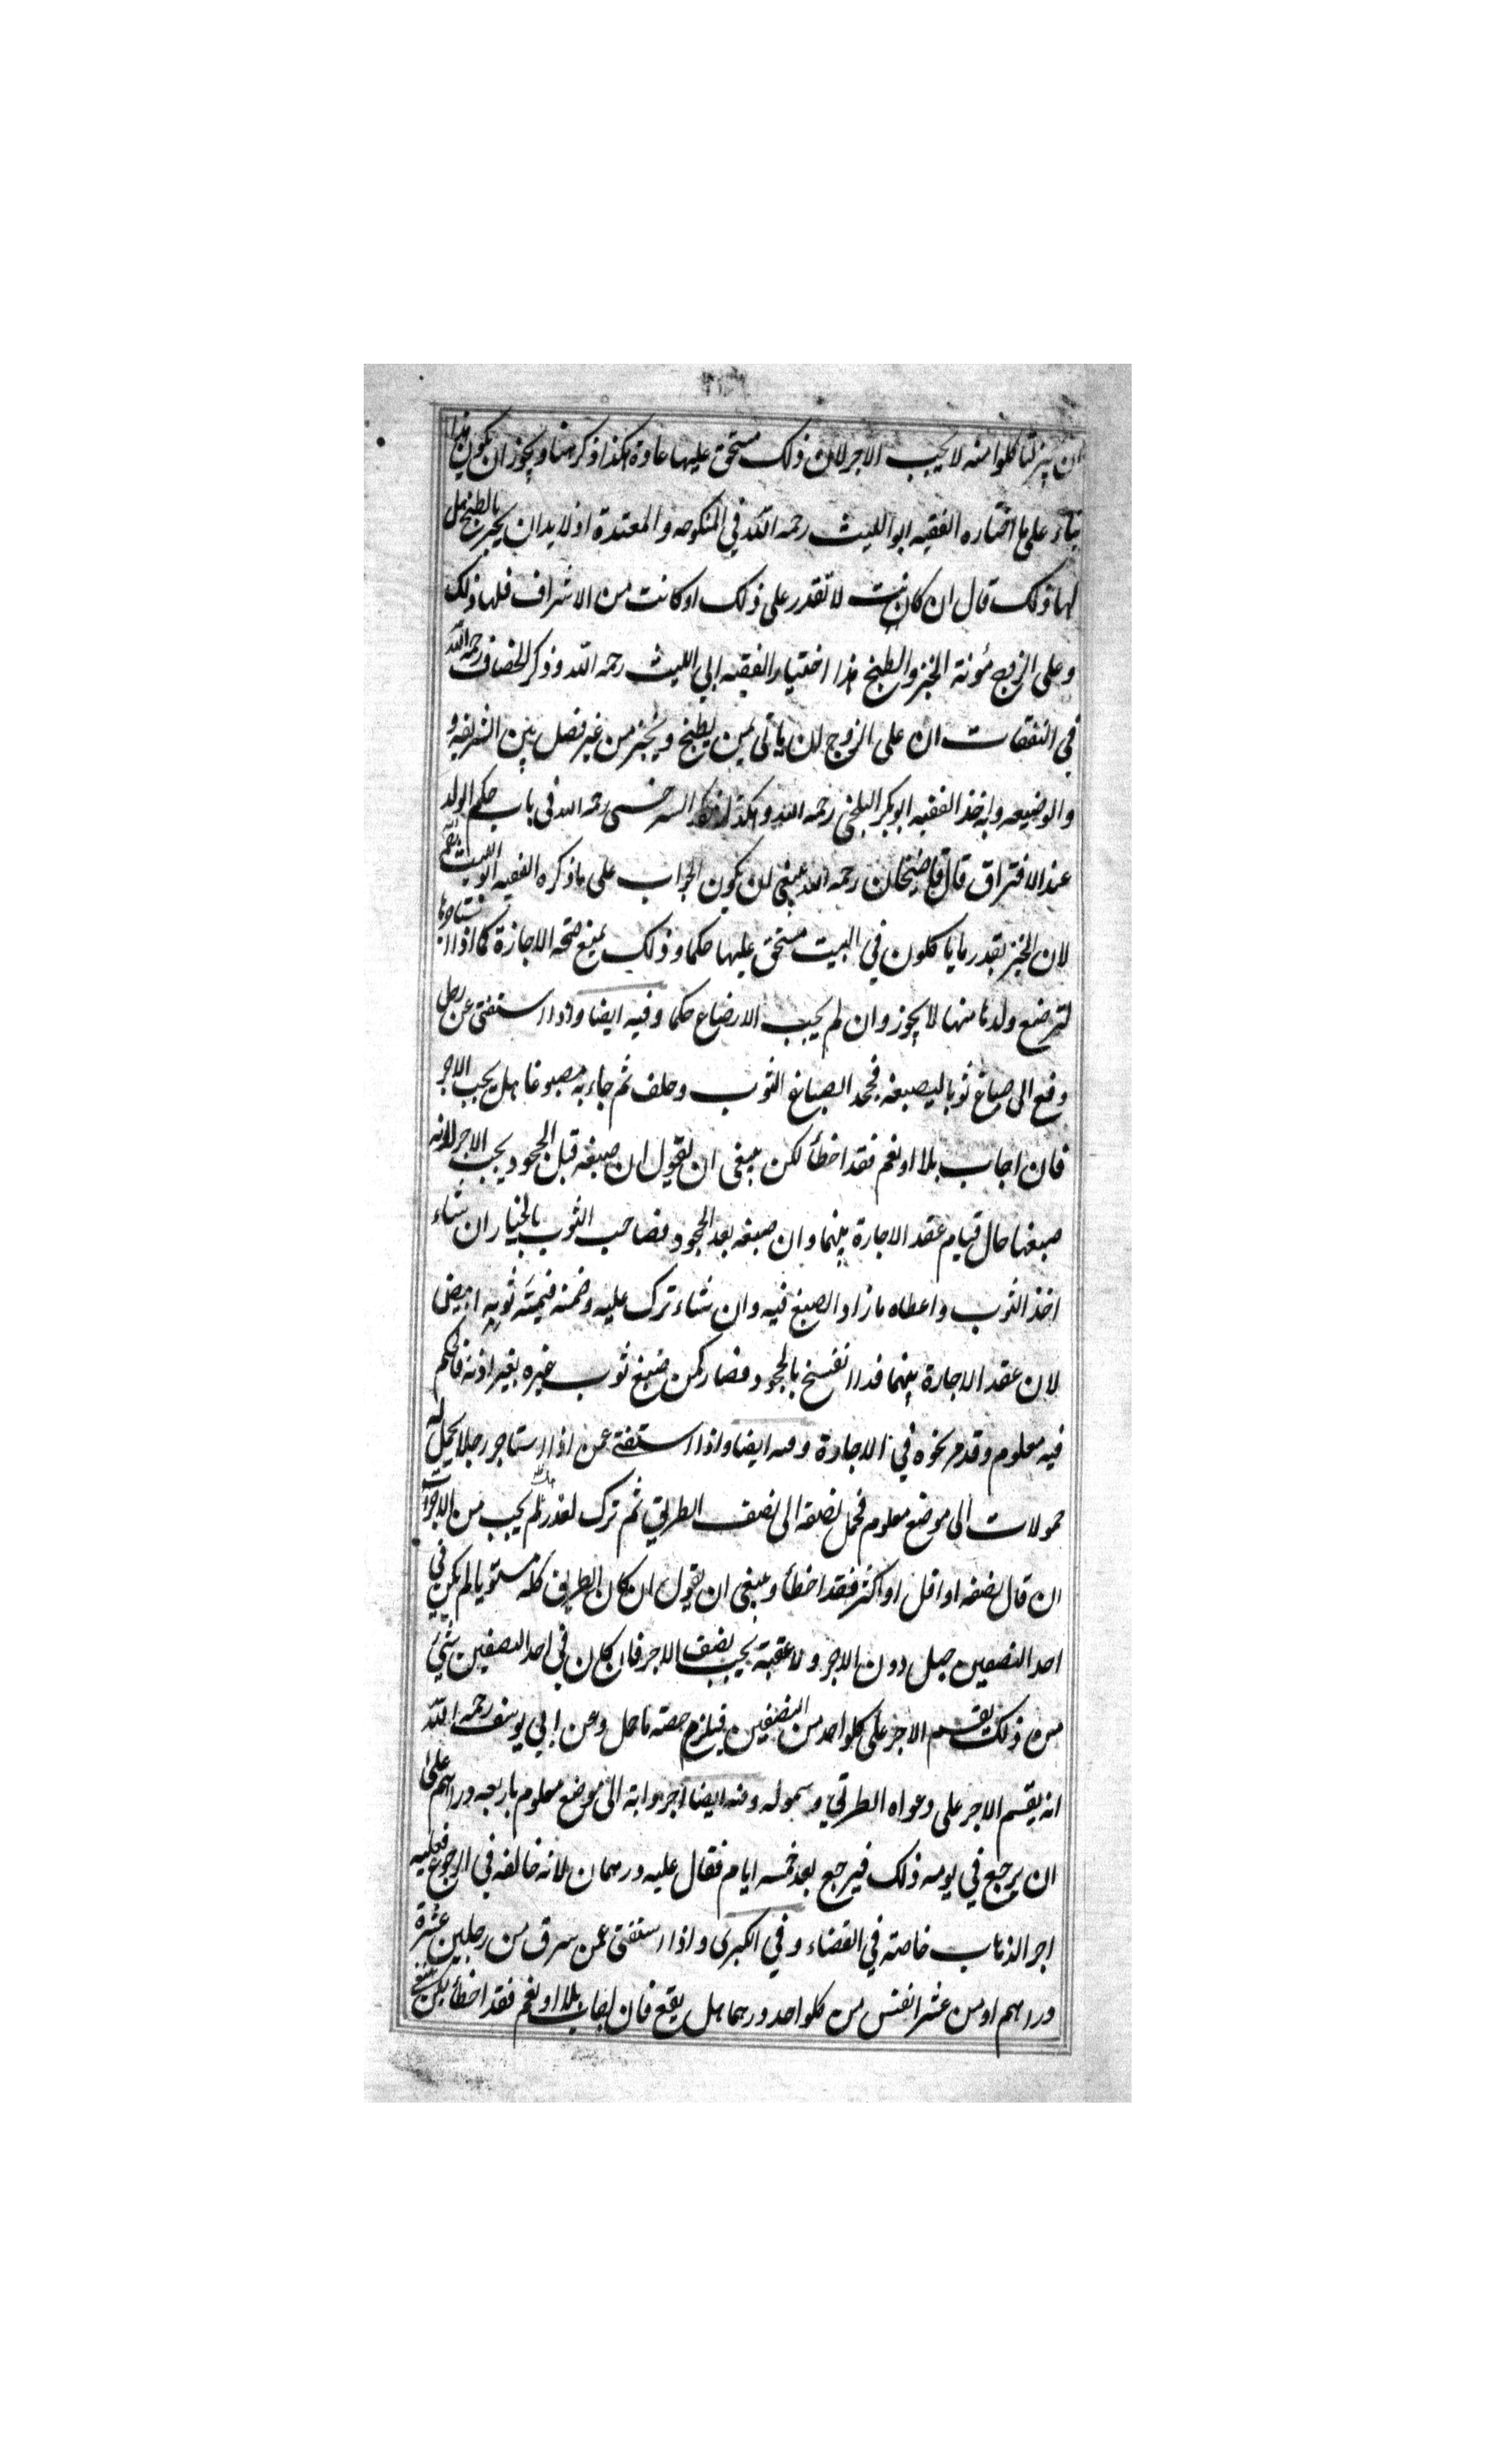 ان يخبز لتأكلوا منه لا يجب الاجر لان ذلك مستحق عليها عادة هكذا ذكر هنا ويجوز ان يكون هذا
بناء على ما اختاره الفقيه ابو الليث رحمه الله في المنكوحه والمعتدة اذ لا بد ان يخبز بالطبخ هل
لها ذلك قال ان كانت لا تقدر على ذلك او كانت من الاشراف فلها ذلك
وعلى الزوج مؤنة الخبز والطبخ هذا اختيار الفقيه ابي الليث رحمه الله وذكر الخصاف رحمه الله
في النفقات ان على الزوج ان ياتى بمن يطبخ ويخبز من غير فصل بين الشريفه و
والوضيعه وبه اخذ الفقيه ابو بكر البلخى رحمه الله وهكذا ذكر السرخسى رحمه الله فى باب حكم الولد
عند الافتراق قال قاضيخان رحمه الله ينبغى ان يكون الجواب على ما ذكره الفقيه ابو الليث رحمه الله
لان الخبز بقدر ما ياكلون في البيت مستحق عليها حكما وذلك يمنع صحة الاجازة كما اذا استاجرها
لترضع ولدها منها لا يجوز وان لم يجب الارضاع حكما وفيه ايضا واذا استفتى عن رجل
دفع الى صباغ ثوبا ليصبغه فجحد الصباغ الثوب وحلف ثم جاء به مصبوغا هل يجب الاجر
فان اجاب بلا او نعم فقد اخطأ لكن ينبغى ان يقول ان صبغه قبل الجحود يجب الاجر لانه
صبغها حال قيام عقد الاجارة بينهما وان صبغه بعد الجحود فصاحب الثوب بالخيار ان شاء
اخذ الثوب واعطاه ما زاد الصبغ فيه وان شاء ترك عليه وضمنه قيمته ثوبه ابيض
لان عقد الاجارة بينهما قد انفسخ بالجحود فصار كمن صبغ ثوب غيره بغير اذنه فالحكم
فيه معلوم وقد مر نحوه في الاجارة وفيه ايضا واذا استفتى عمن اذا استاجر رجلا يحمل له
حمولات الى موضع معلوم فحمل نصفه الى نصف الطريق ثم ترك لعذر لم يجب من الاجرة
ان قال نصفه او اقل او اكثر فقد اخطأ وينبغى ان يقول ان كان الطريق كله مستويا لم يكن في
احد النصفين جبل دون الاجر ولا عقبة يجب نصف الاجر فان كان في احد النصفين شئ
من ذلك يقسم الاجر على كلو احد من النصفين فيلزم حصته ما حمل وعن ابي يوسف رحمه الله
انه يقسم الاجر على دعواه الطريق وسهوله وفيه ايضا اجر دابة الى موضع معلوم باربعه دراهم على
ان يرجع في يومه ذلك فيرجع بعد خمسه ايام فقال عليه درهمان لانه خالفه في الرجوع فعليه
اجر الذهاب خاصته في القضاء وفي الكبرى واذا استفتى عمن سرق من رجلين عشرة
دراهم او من عشر انفس من كلو احد درهما هل يقطع فان اجاب بلا او نعم فقد اخطأ لكن ينبغى